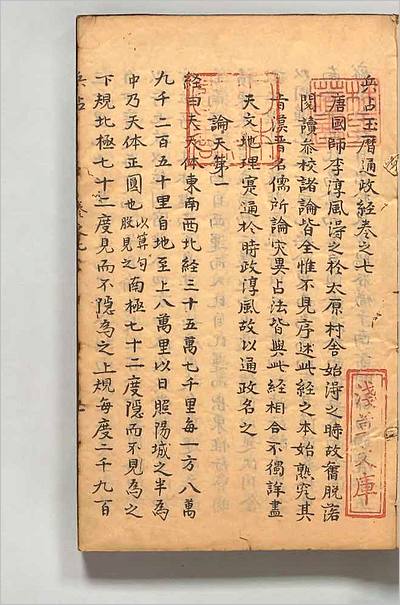 兵占玉暦通政経巻之七
唐國師李淳風得之於太原村舎始得之時故舊脱落
閲讀叅校諸論皆全惟不見序述此經之本始熟究其
旨漢晋名儒所論灾異占法皆與此經相合不獨詳盡
天文地理寔通於時政淳風故以通政名之
論天第一
經曰天天体東南西北経三十五萬七千里每一方八萬
九千二百五十里自地至上八萬里以日照陽城之半為
中乃天体正圓也以算句股見之南極七十二度隱而不見為之
下規北極七十二度見而不隱為之上規每度二千九百
兵占
巻之七
淺草文庫